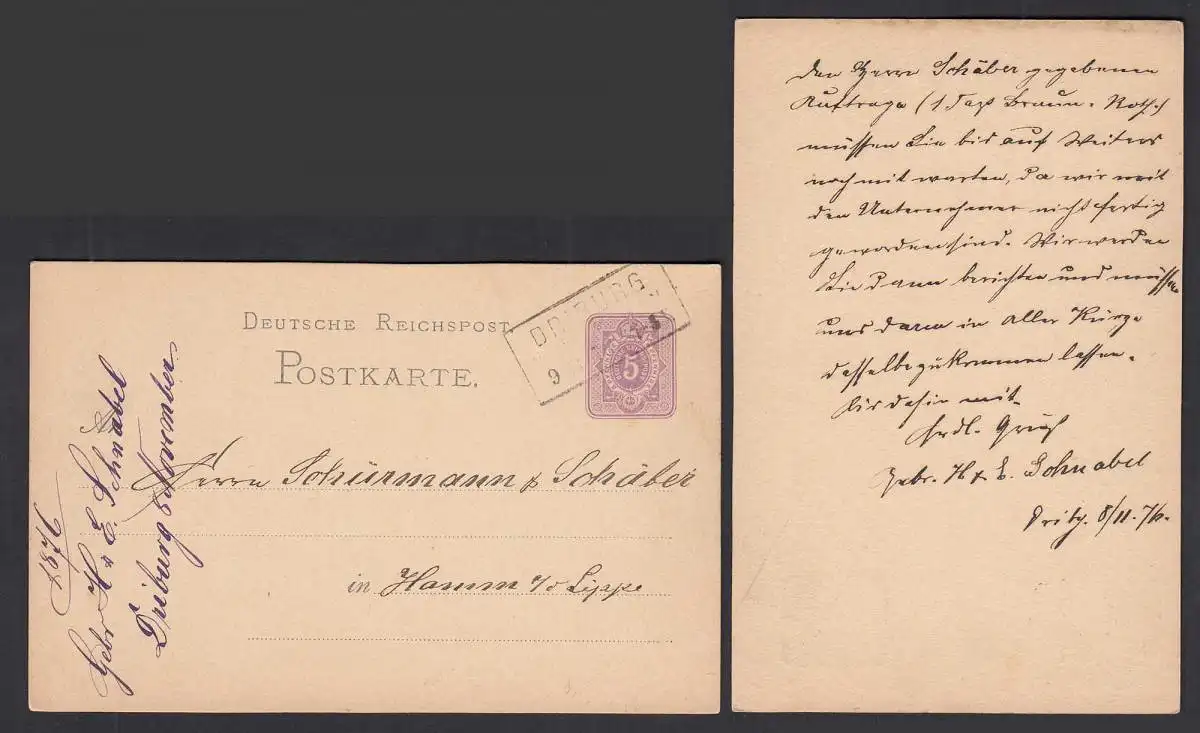 DEUTSCHE REICHSPOST
POSTKARTE.
DRIBURG
9
5
An
Herrn Schürmann & Schäber
in Hamm a/d Lippe
1876
Gebr H & E. Schnabel
Driburg 8 November
den Herrn Schäber gegebenen
Auftrage (1 Faß Braun-Roth)
müssen Sie bis auf Weiters
noch mit warten, da wir mit
den Unternehmer nicht fertig
geworden sind. Wir werden
Sie dann berichten und müssen
uns dann in aller Kürze
dasselbe zukommen lassen.
Bis dahin mit
frdl. Gruß
Gebr. H & E. Schnabel
Dribg. 8/11. 76.